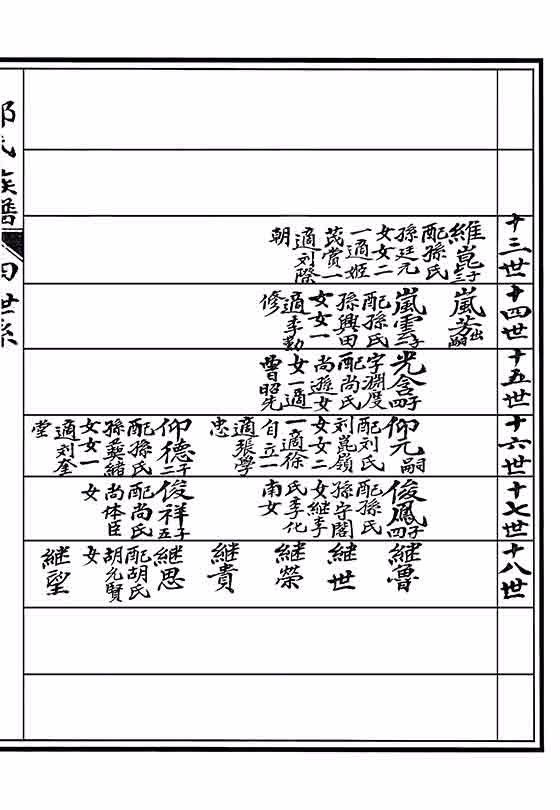 十三世
維崑三子
配孫氏
孫廷元
女女二
一適姬
茂賞一
適刘際
朝
十四世
嵐芳出嗣
嵐雲三子
配孫氏
孫興田
女女一
適李勤
修
十五世
光含四子
字淵度
配尚氏
尚遜女
女一適
曹昭先
十六世
仰元嗣
配刘氏
刘崑嶺
女女二
一適徐
自立一
適張學
忠
仰德二子
配孫氏
孫奠緒
女女一
適刘奎
堂
十七世
俊鳳四子
配孫氏
孫守閣
女継李
氏李化
南女
俊祥五子
配尚氏
尚体臣
女
十八世
継魯
継世
継榮
継貴
継思
配胡氏
胡允賢
女
継聖
氏族譜
四世系